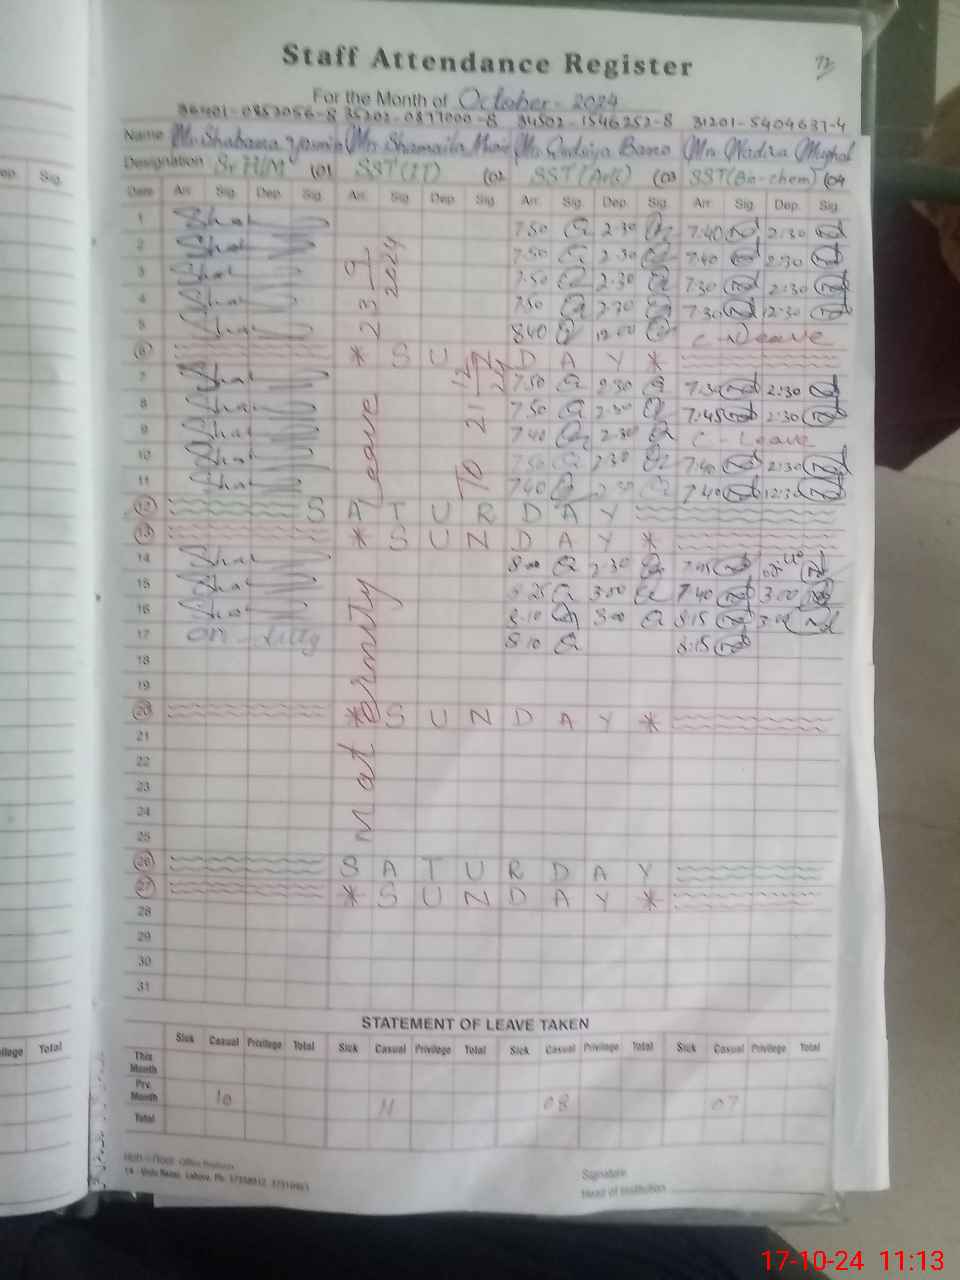 Staff Attendance Register
For the Month of October - 2024
35202-0877000-8 34502-1546252-8 31201-5404637-4
Name Mrs Shabana Mrs Shamaila Mrs Qudsiya Bano Mrs Nadira Mughal
Designation Sr H/M (01 SST(IT) (02 SST(Arts) (03 SST(Bio-chem) (04
Date Arr. Sig. Dep. Sig. Arr. Sig. Dep. Sig. Arr. Sig. Dep. Sig. Arr. Sig. Dep. Sig.
1 7.50 2.30 7:40 2:30
2 7.50 2.30 7:40 2:30
3 7.50 2.30 7:30 2:30
4 7.50 2.30 7:30 12:30
5 8.40 12.00 C-Leave
6 * S U N D A Y *
7 7.50 2.30 7:30 2:30
8 7.50 2.30 7:45 2:30
9 7.40 2.30 C-Leave
10 7.50 2.30 7:40 2:30
11 7.40 2.30 7:40 12:30
12 S A T U R D A Y
13 * S U N D A Y *
14 8.00 2.30 7:45
15 8.25 3.00 7:40 3:00
16 8.10 3.00 8:15 3:00
17 on duty 8.10 8:15
18
19
20 * S U N D A Y *
21
22
23
24
25
26 S A T U R D A Y
27 * S U N D A Y *
28
29
30
31
Maternity Leave
2024
TO
STATEMENT OF LEAVE TAKEN
Sick Casual Privilege Total Sick Casual Privilege Total Sick Casual Privilege Total Sick Casual Privilege Total
This Month
Pre. Month 10 11 08 07
Total
Signature
Head of Institution
Sig.
Total
17-10-24 11:13